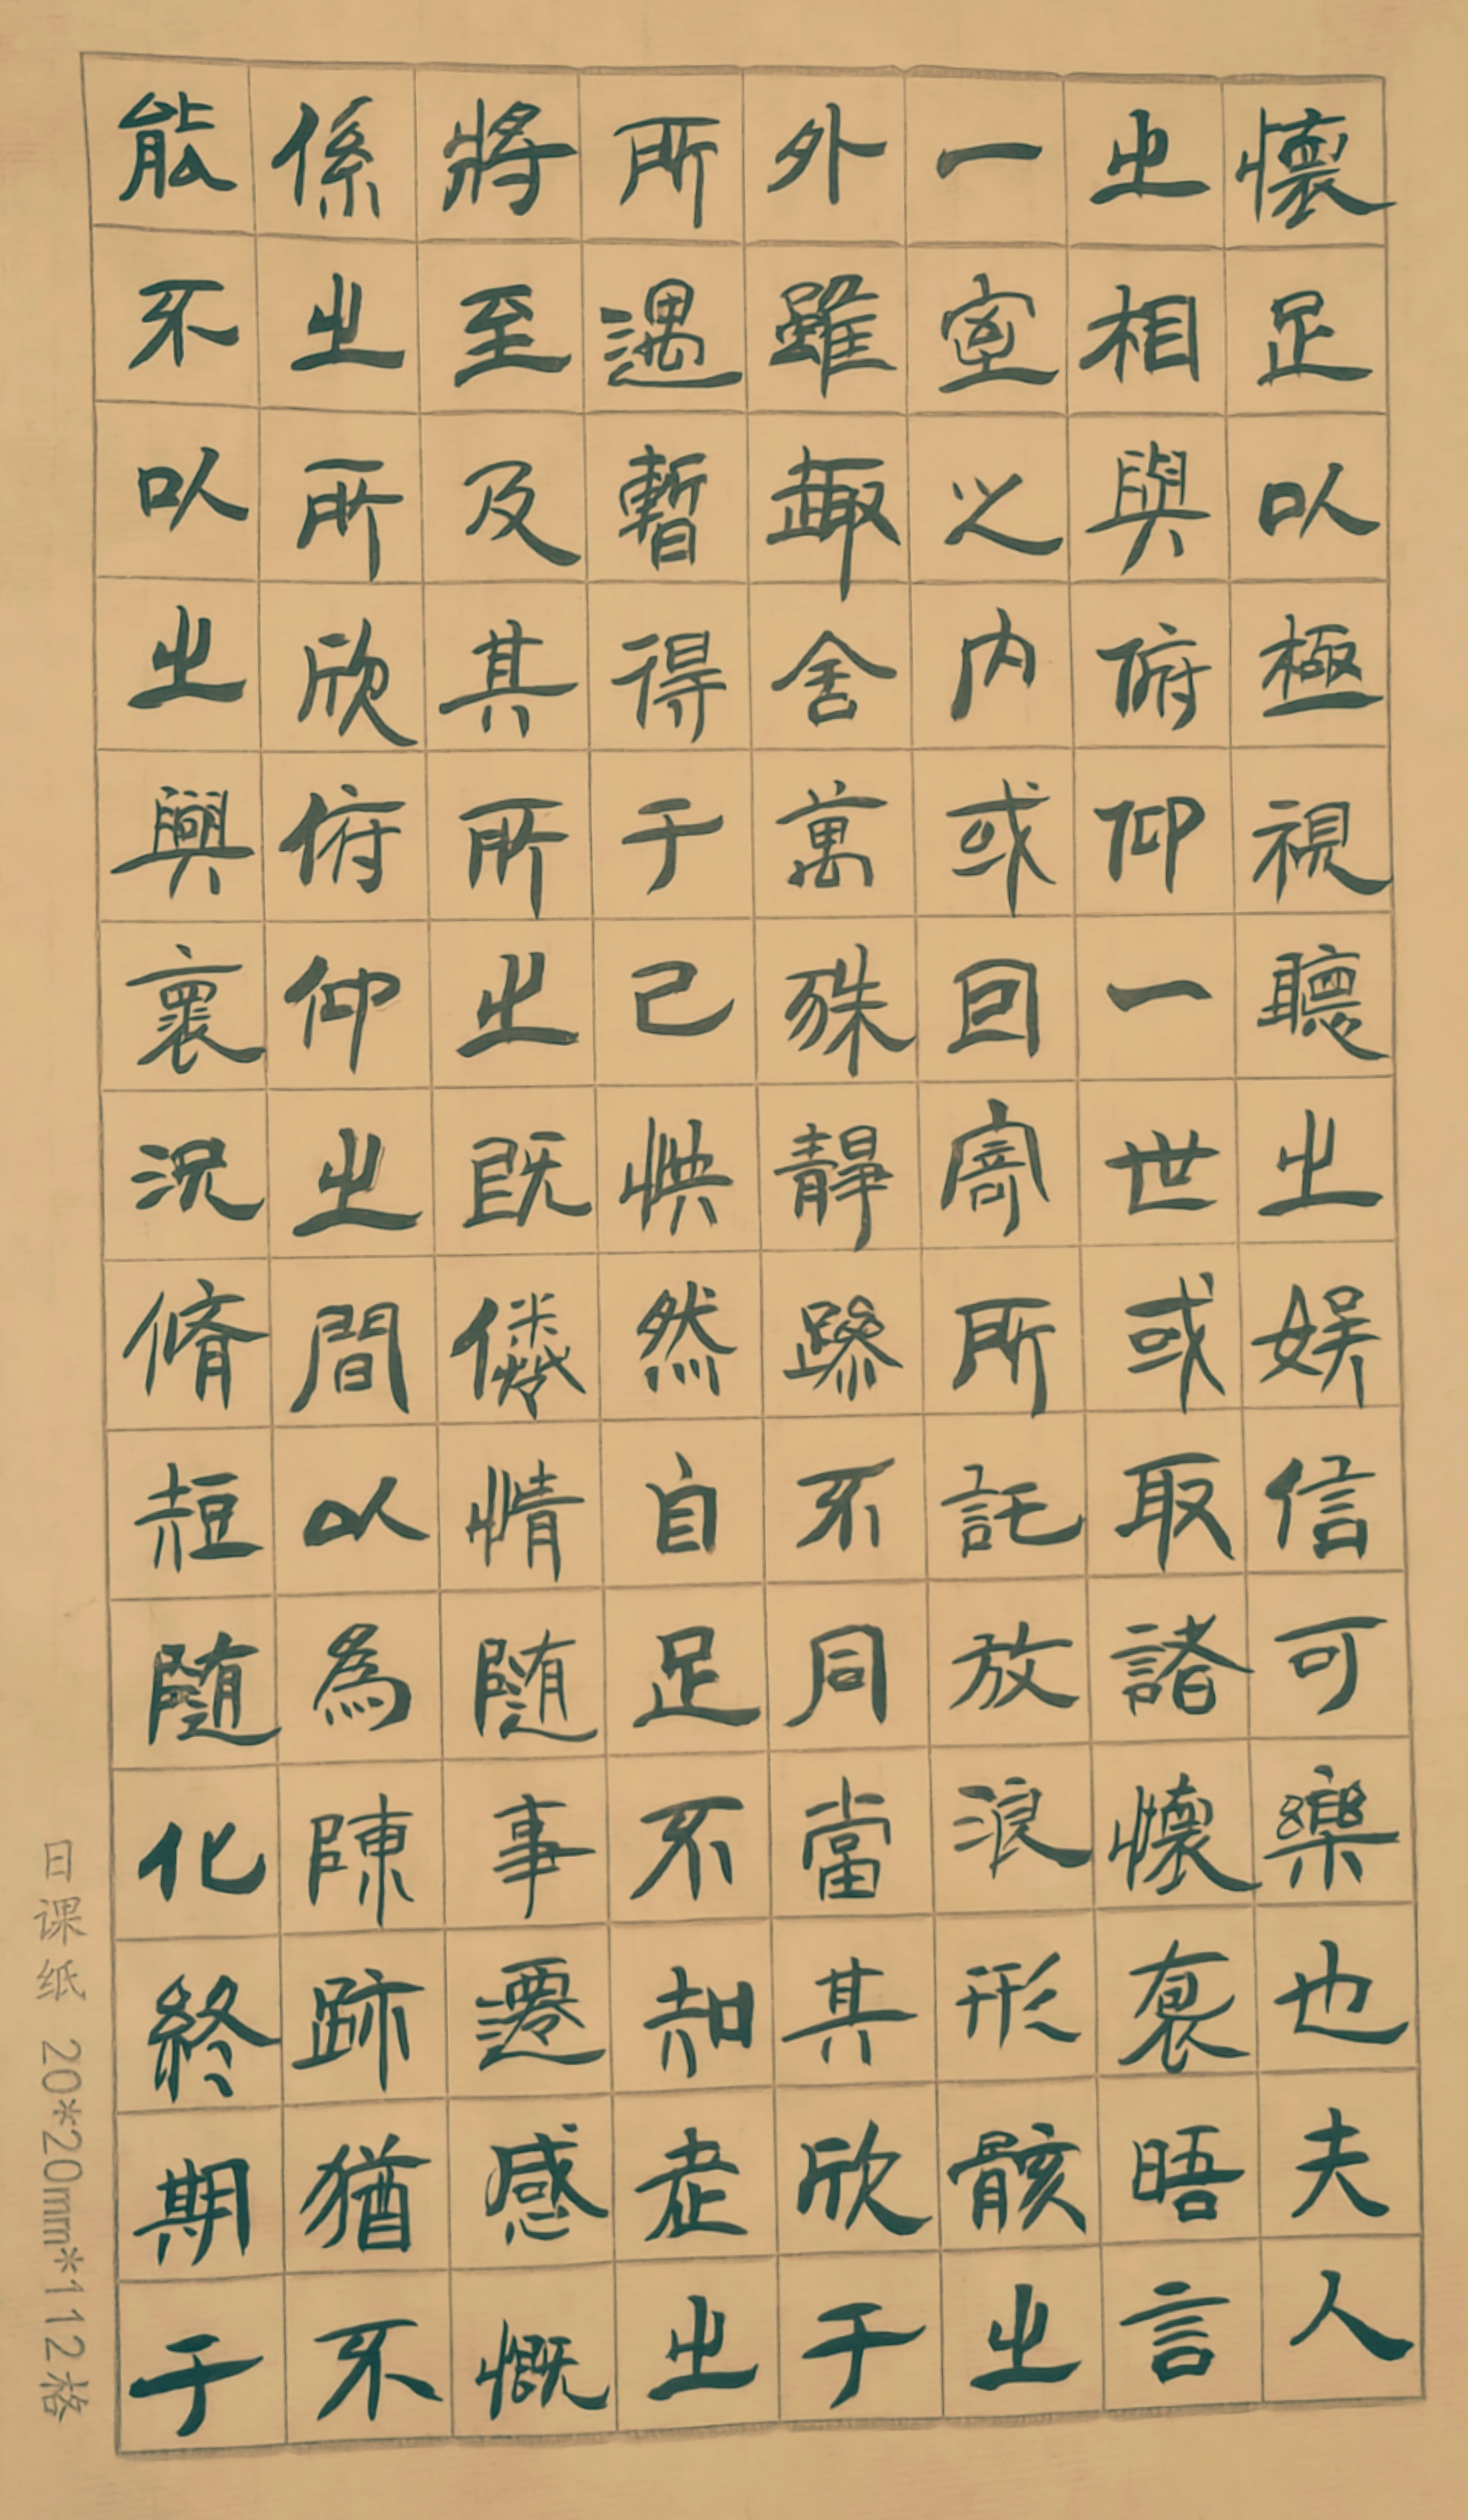 懷足以極視聽之娛信可樂也夫人
之相與俯仰一世或取諸懷袌晤言
一室之内或囙寄所託放浪形骸之
外雖趣舍萬殊靜躁不同當其欣于
所遇暫得于己怏然自足不知老之
將至及其所之既倦情隨事遷感慨
係之所欣俯仰之間以為陳跡猶不
能不以之興褱況脩短隨化終期于
日课纸 20*20mm*112格